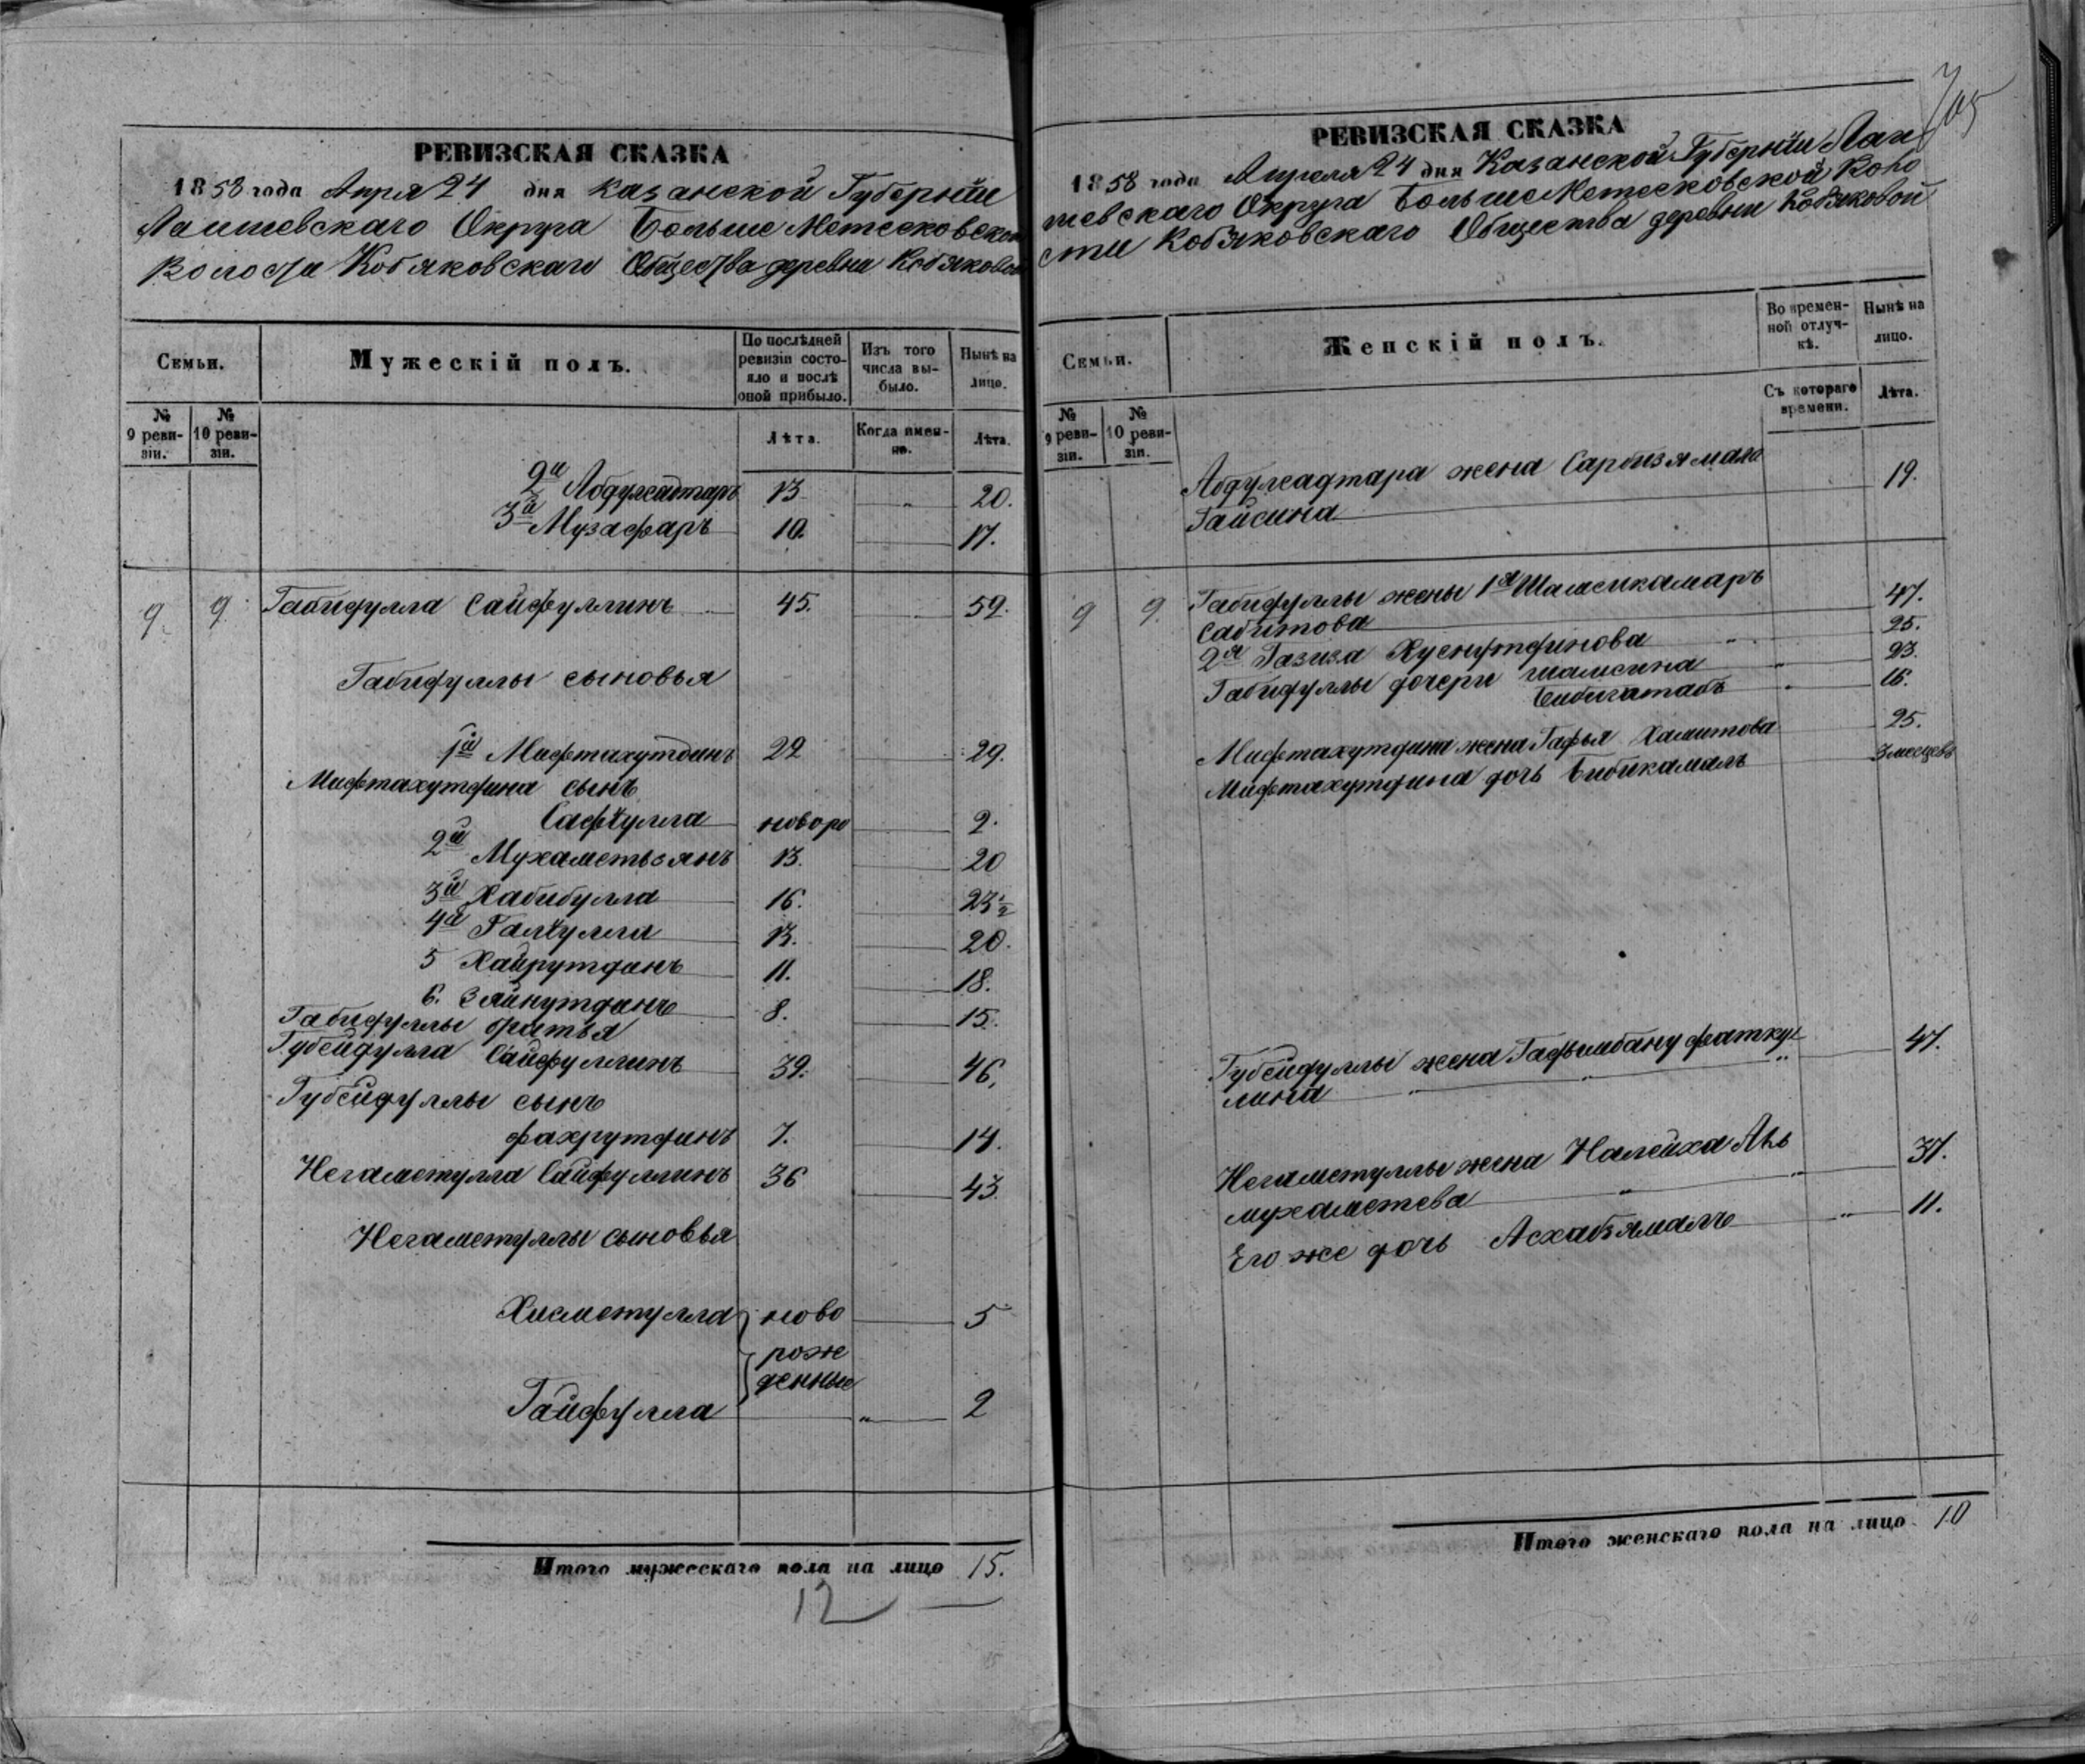 РЕВИЗСКАЯ СКАЗКА
1858 года Апря 24 дня Казанской Губернiи
Лаишевскаго Округа Больше Метесковской
Волости Кобяковскаго Общества деревни Кобяковой
Семьи.
Мужескiй полъ.
По послѣдней ревизiи состояло и послѣ оной прибыло.
Изъ того числа выбыло.
Нынѣ на лицо.
№ 9 ревизiи.
№ 10 ревизiи.
Лѣта.
Когда именно.
Лѣта.
2й Абдулсадтаръ 13 " 20.
3й Музафаръ 10. 17.
9. 9. Габидулла Сайфуллинъ 45. 52.
Габидуллы сыновья
1й Мифтахутдинъ 22 29.
Мифтахутдина сынъ
Сафiулла новоро 2.
2й Мухаметьзянъ 13. 20
3й Хабибулла 16. 23 1/2
4й Галiулла 13. 20.
5 Хайрутдинъ 11. 18.
6. Зяйнутдинъ 8. 15.
Габидуллы братья
Губейдулла Сайфуллинъ 39. 46.
Губейдуллы сынъ
Фахрутдинъ 7. 14.
Негаметулла Сайфуллинъ 36 43.
Негаметуллы сыновья
Хисметулла ново 5
рож
денные
Гайфулла " 2
Итого мужескаго пола на лицо 15.
12
705
РЕВИЗСКАЯ СКАЗКА
1858 года Апреля 24 дня Казанской Губернiи Лаи
шевскаго Округа БольшеМетесковской Воло
сти Кобяковскаго Общества деревни Кобяковой
Семьи.
Женскiй полъ.
Во временной отлучкѣ.
Нынѣ на лицо.
№ 9 ревизiи.
№ 10 ревизiи.
Съ котораго времени.
Лѣта.
Абдулсадтара жена Сарбизямала 19.
Гайсина
9 9. Габидуллы жены 1я Шамсикамаръ
Сабитова 47.
2я Газиза Хуснутдинова " 25.
Габидуллы дочери Шамсина " 23.
Бибигатабъ " 16.
Мифтахутдина жена Гафья Хамитова 25.
Мифтахутдина дочь Бибикамалъ 3 месецевъ
Губейдуллы жена Гафьимбану Фатку 47.
лина " "
Негаметуллы жена Халейха Аль 37.
мухаметева " "
Его же дочь Асхабзямалъ " 11.
Итого женскаго пола на лицо 10